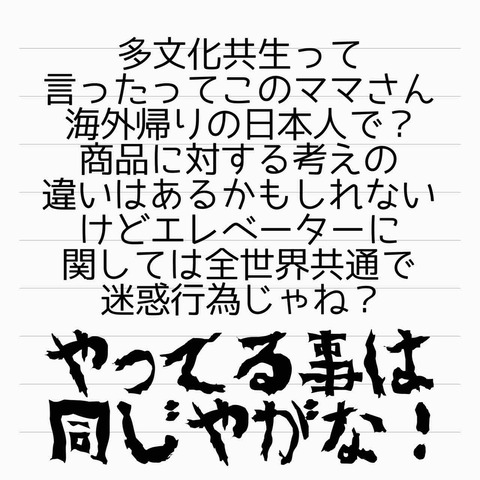 多文化共生って
言ったってこのママさん
海外帰りの日本人で？
商品に対する考えの
違いはあるかもしれない
けどエレベーターに
関しては全世界共通で
迷惑行為じゃね？
やってる事は
同じやがな！